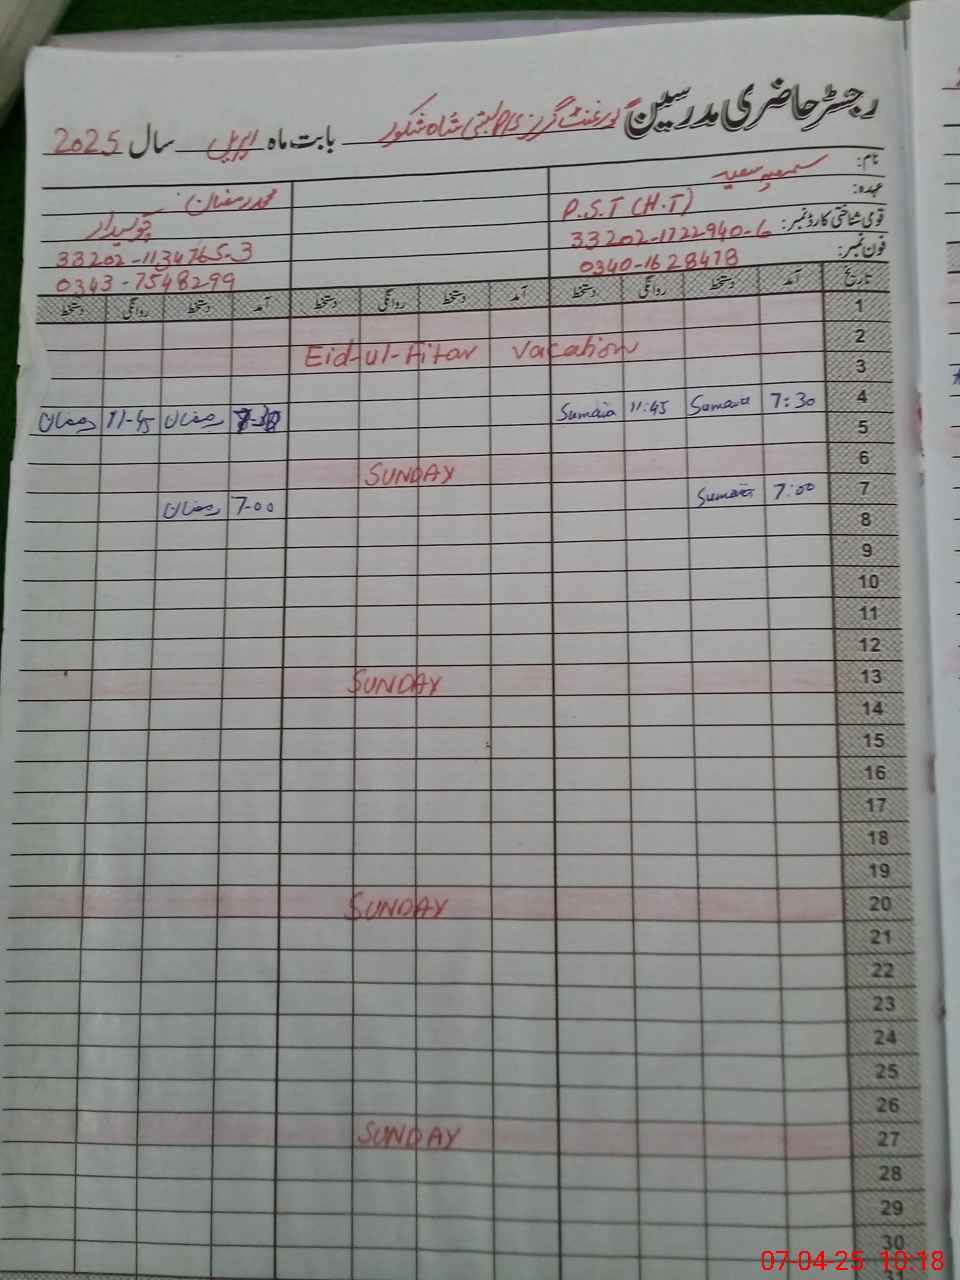 رجسٹر حاضری مدرسین گورنمنٹ گرلز P/S بستی شاہ شکور بابت ماہ اپریل سال 2025
نام: سمعیہ سعید محمد رمضان
عہدہ: P.S.T (H.T) چوکیدار
قومی شناختی کارڈ نمبر: 33202-1722940-6 33202-1134765-3
فون نمبر: 0340-1628478 0343-7548299
تاریخ آمد دستخط روانگی دستخط آمد دستخط روانگی دستخط آمد دستخط روانگی دستخط
1
2
Eid-ul-Fitar Vacation
3
4 7:30 Sumaia 11:45 Sumaia 7-30 رمضان 11-45 رمضان
5
6 SUNDAY
7 7:00 Sumaia 7-00 رمضان
8
9
10
11
12
13 SUNDAY
14
15
16
17
18
19
20 SUNDAY
21
22
23
24
25
26
27 SUNDAY
28
29
30
07-04-25 10:18